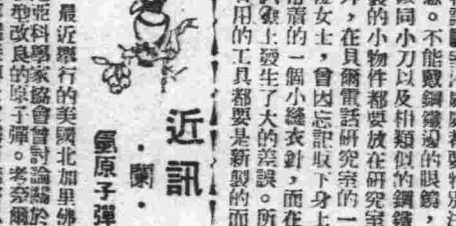 意。不能戴鋼鐵邊的眼鏡，
鎖同小刀以及相類似的鋼鐵
製的小物件都要放在研究室
外，在貝爾電話研究室的一
女士，曾因忘記取下身上
帶的一個小縫衣針，而在
試驗上發生了大的差誤。所
用的工具都要是新製的而
近訊
·蘭·
氫原子彈
最近舉行的美國北加里佛
尼亞科學家協會曾討論關於
型改良的原子彈。考奈爾